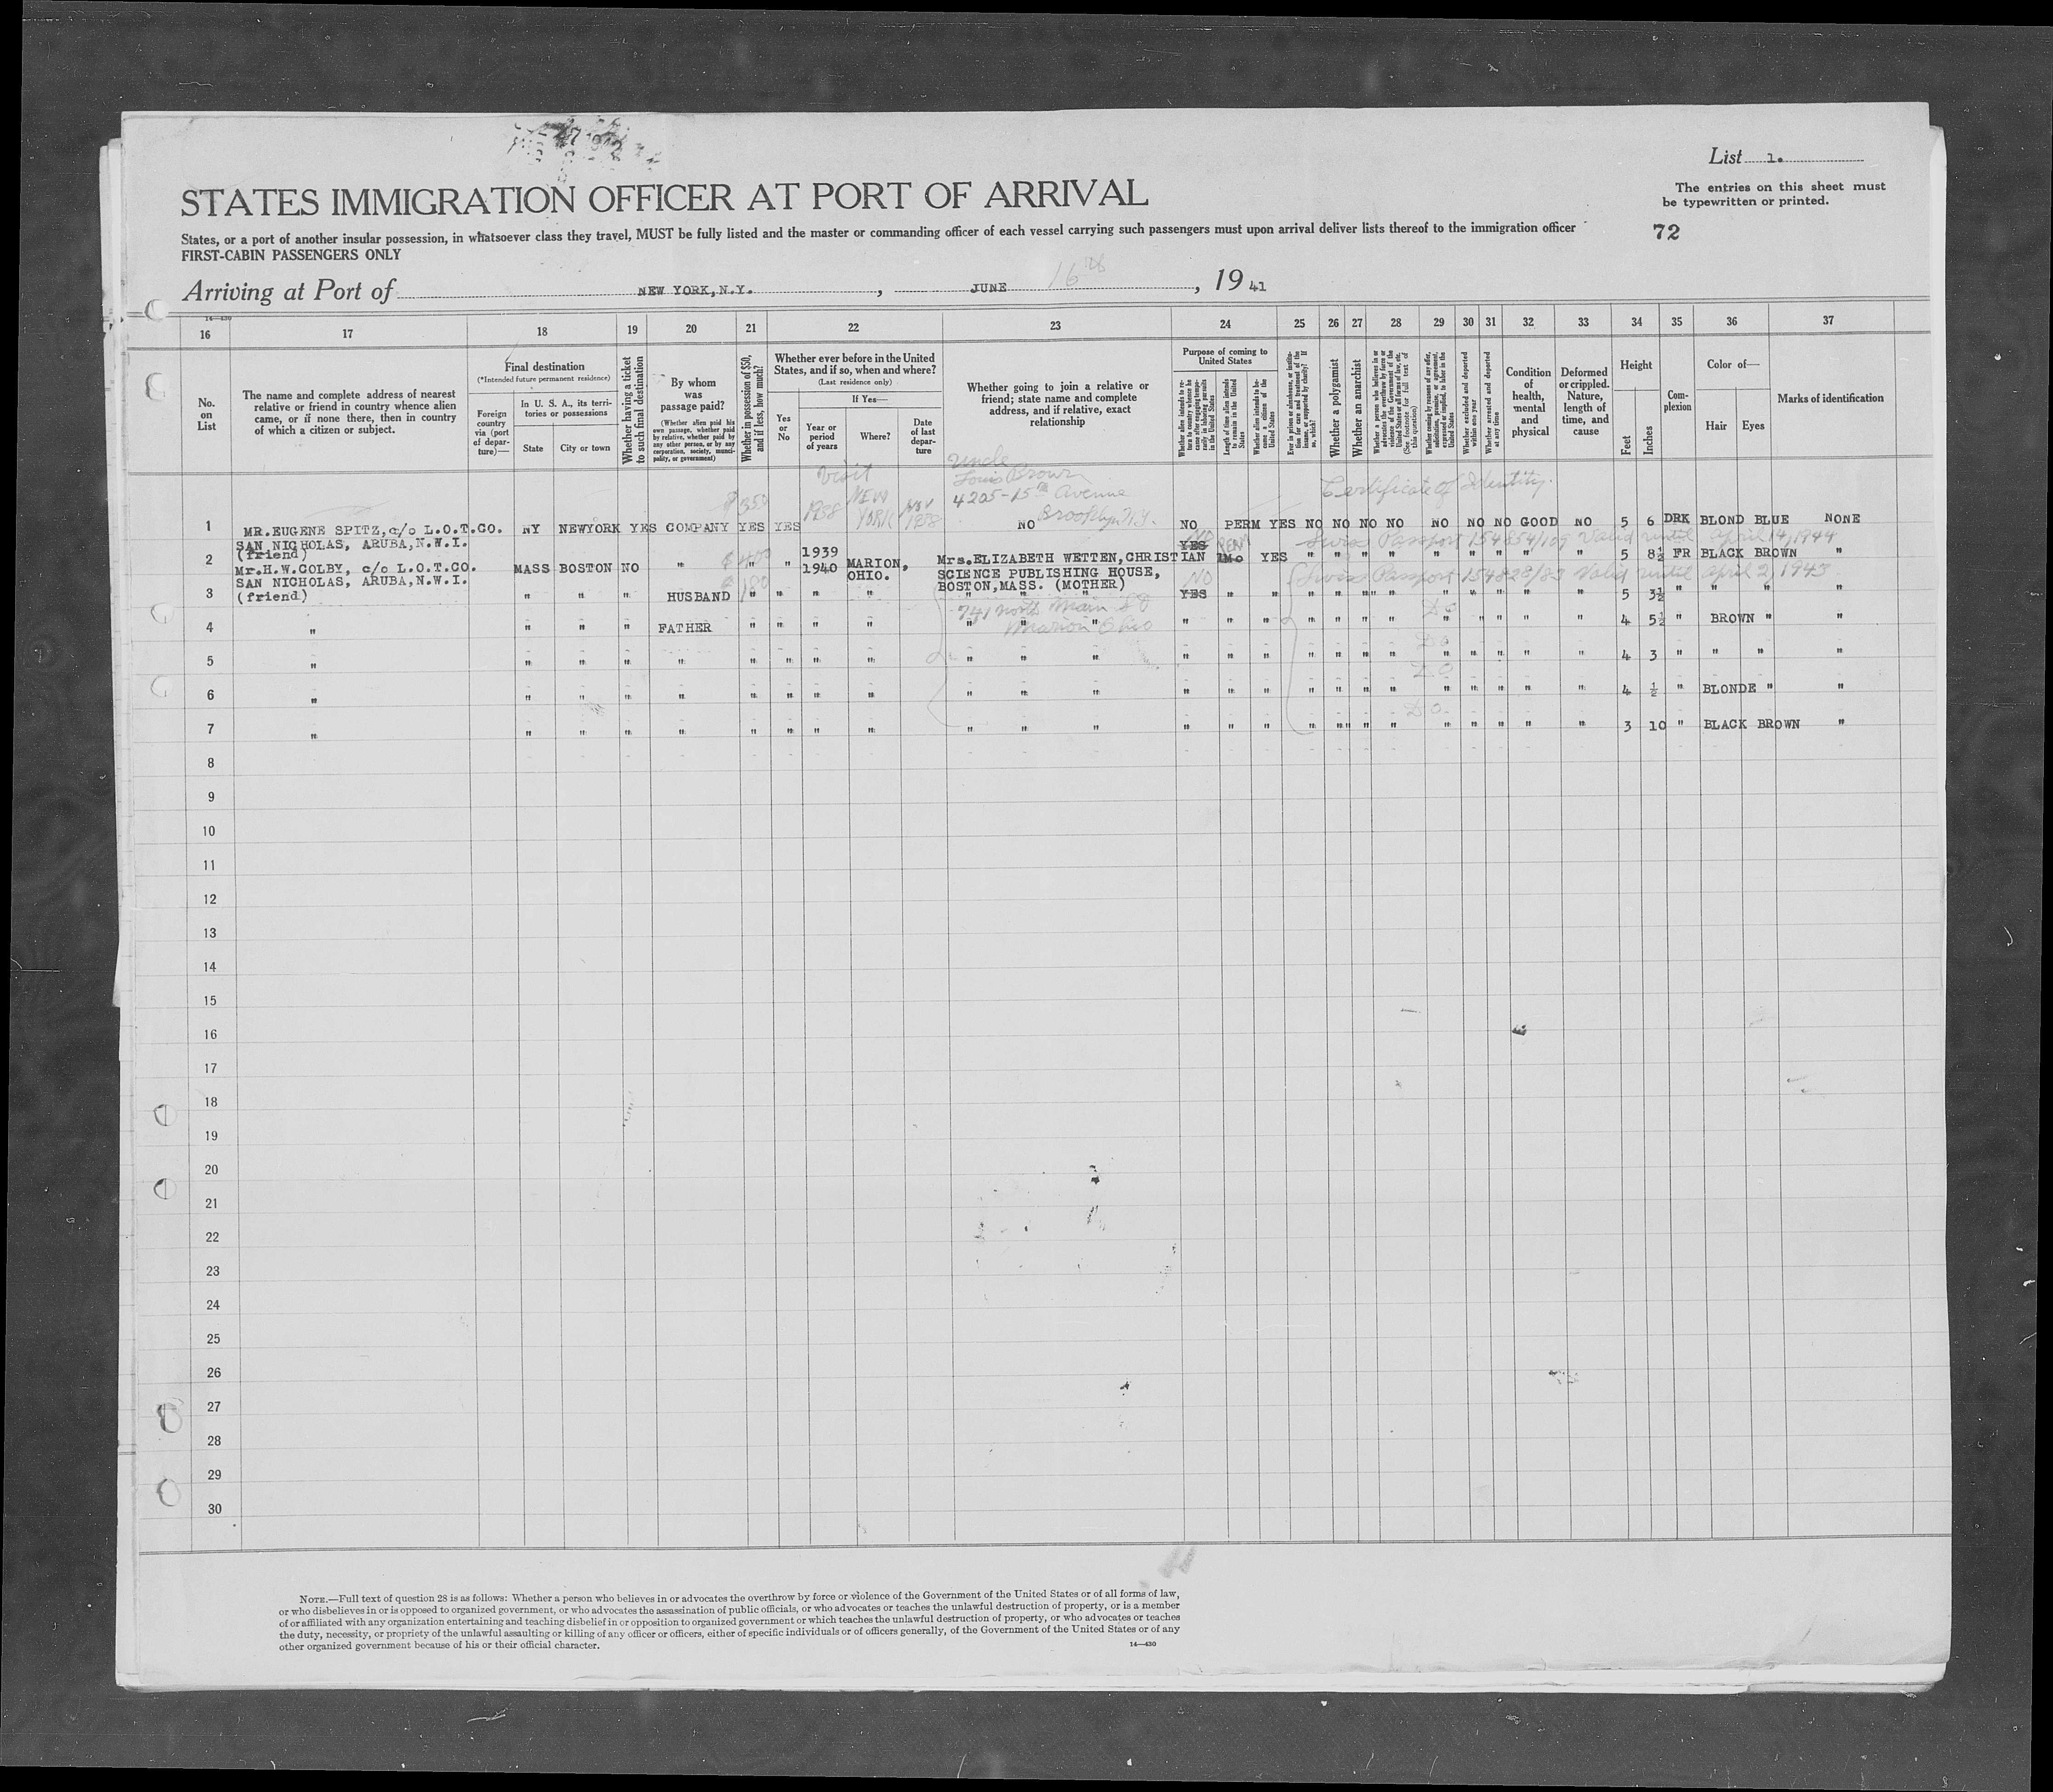 List 1.
The entries on this sheet must
be typewritten or printed.
STATES IMMIGRATION OFFICER AT PORT OF ARRIVAL
States, or a port of another insular possession, in whatsoever class they travel, MUST be fully listed and the master or commanding officer of each vessel carrying such passengers must upon arrival deliver lists thereof to the immigration officer
72
FIRST-CABIN PASSENGERS ONLY
Arriving at Port of NEW YORK,N.Y. , JUNE 16th , 19 41
14—430
16 17 18 19 20 21 22 23 24 25 26 27 28 29 30 31 32 33 34 35 36 37
No. on List
The name and complete address of nearest relative or friend in country whence alien came, or if none there, then in country of which a citizen or subject.
Final destination
(*Intended future permanent residence)
Foreign country via (port of departure)—
In U. S. A., its territories or possessions
State
City or town
Whether having a ticket to such final destination
By whom was passage paid?
(Whether alien paid his own passage, whether paid by relative, whether paid by any other person, or by any corporation, society, municipality, or government)
Whether in possession of $50, and if less, how much?
Whether ever before in the United States, and if so, when and where?
(Last residence only)
Yes or No
If Yes—
Year or period of years
Where?
Date of last departure
Whether going to join a relative or friend; state name and complete address, and if relative, exact relationship
Purpose of coming to United States
Whether alien intends to return to country whence he came after engaging temporarily in laboring pursuits in the United States
Length of time alien intends to remain in the United States
Whether alien intends to become a citizen of the United States
Ever in prison or almshouse, or institution for care and treatment of the insane, or supported by charity? If so, which?
Whether a polygamist
Whether an anarchist
Whether a person who believes in or advocates the overthrow by force or violence of the Government of the United States or all forms of law, etc. (See footnote for full text of this question)
Whether coming by reasons of any offer, solicitation, promise, or agreement, expressed or implied, to labor in the United States
Whether excluded and deported within one year
Whether arrested and deported at any time
Condition of health, mental and physical
Deformed or crippled. Nature, length of time, and cause
Height
Feet
Inches
Complexion
Color of—
Hair
Eyes
Marks of identification
Visit
Uncle
Louis Brown
4205-15th Avenue
Brooklyn N.Y.
Certificate of Identity.
$350
1938 NEW YORK NOV 1938
1 MR.EUGENE SPITZ,c/o L.O.T.CO. NY NEWYORK YES COMPANY YES YES NO NO PERM YES NO NO NO NO NO NO NO GOOD NO 5 6 DRK BLOND BLUE NONE
SAN NICHOLAS, ARUBA,N.W.I.
(friend)
NO PERM
Swiss Passport 154854/109 Valid until April 14, 1944
2 Mr.H.W.COLBY, c/o L.O.T.CO. MASS BOSTON NO " $400 " " 1939 1940 MARION, OHIO. Mrs.ELIZABETH WETTEN,CHRISTIAN YES 1Mo YES " " " " " " " " " 5 8½ FR BLACK BROWN "
SAN NICHOLAS, ARUBA,N.W.I.
(friend)
SCIENCE PUBLISHING HOUSE,
BOSTON,MASS. (MOTHER)
NO
Swiss Passport 154828/83 Valid until April 2, 1943
3 " " " HUSBAND $180 " " " " " " " YES " " " " " " " " " " " 5 3½ " " " "
741 North Main St
Marion Ohio
Do
4 " " " " FATHER " " " " " " " " " " " " " " " " " " " 4 5½ " BROWN " "
Do
5 " " " " " " " " " " " " " " " " " " " " " " " " 4 3 " " " "
Do
6 " " " " " " " " " " " " " " " " " " " " " " " " 4 ½ " BLONDE " "
Do
7 " " " " " " " " " " " " " " " " " " " " " " " " 3 10 " BLACK BROWN "
8
9
10
11
12
13
14
15
16
17
18
19
20
21
22
23
24
25
26
27
28
29
30
NOTE.—Full text of question 28 is as follows: Whether a person who believes in or advocates the overthrow by force or violence of the Government of the United States or of all forms of law,
or who disbelieves in or is opposed to organized government, or who advocates the assassination of public officials, or who advocates or teaches the unlawful destruction of property, or is a member
of or affiliated with any organization entertaining and teaching disbelief in or opposition to organized government or which teaches the unlawful destruction of property, or who advocates or teaches
the duty, necessity, or propriety of the unlawful assaulting or killing of any officer or officers, either of specific individuals or of officers generally, of the Government of the United States or of any
other organized government because of his or their official character.
14—430